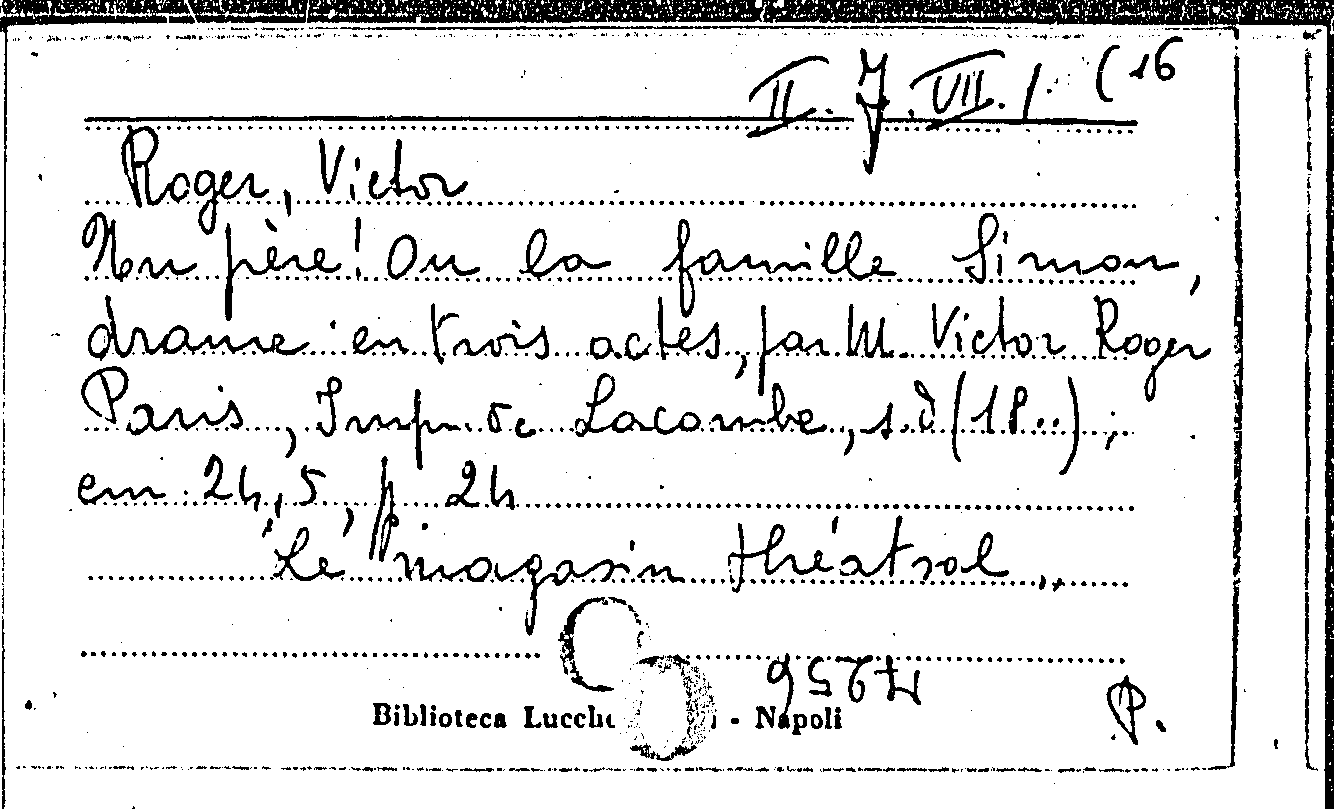 II. J. VII. / (16
Roger, Victor
Un père! Ou la famille Simon,
drame en trois actes, par M. Victor Roger
Paris, Impr. de Lacombe, s.d (18..);
cm 24,5, p 24
"Le magasin théatral„
Biblioteca - Napoli
P.